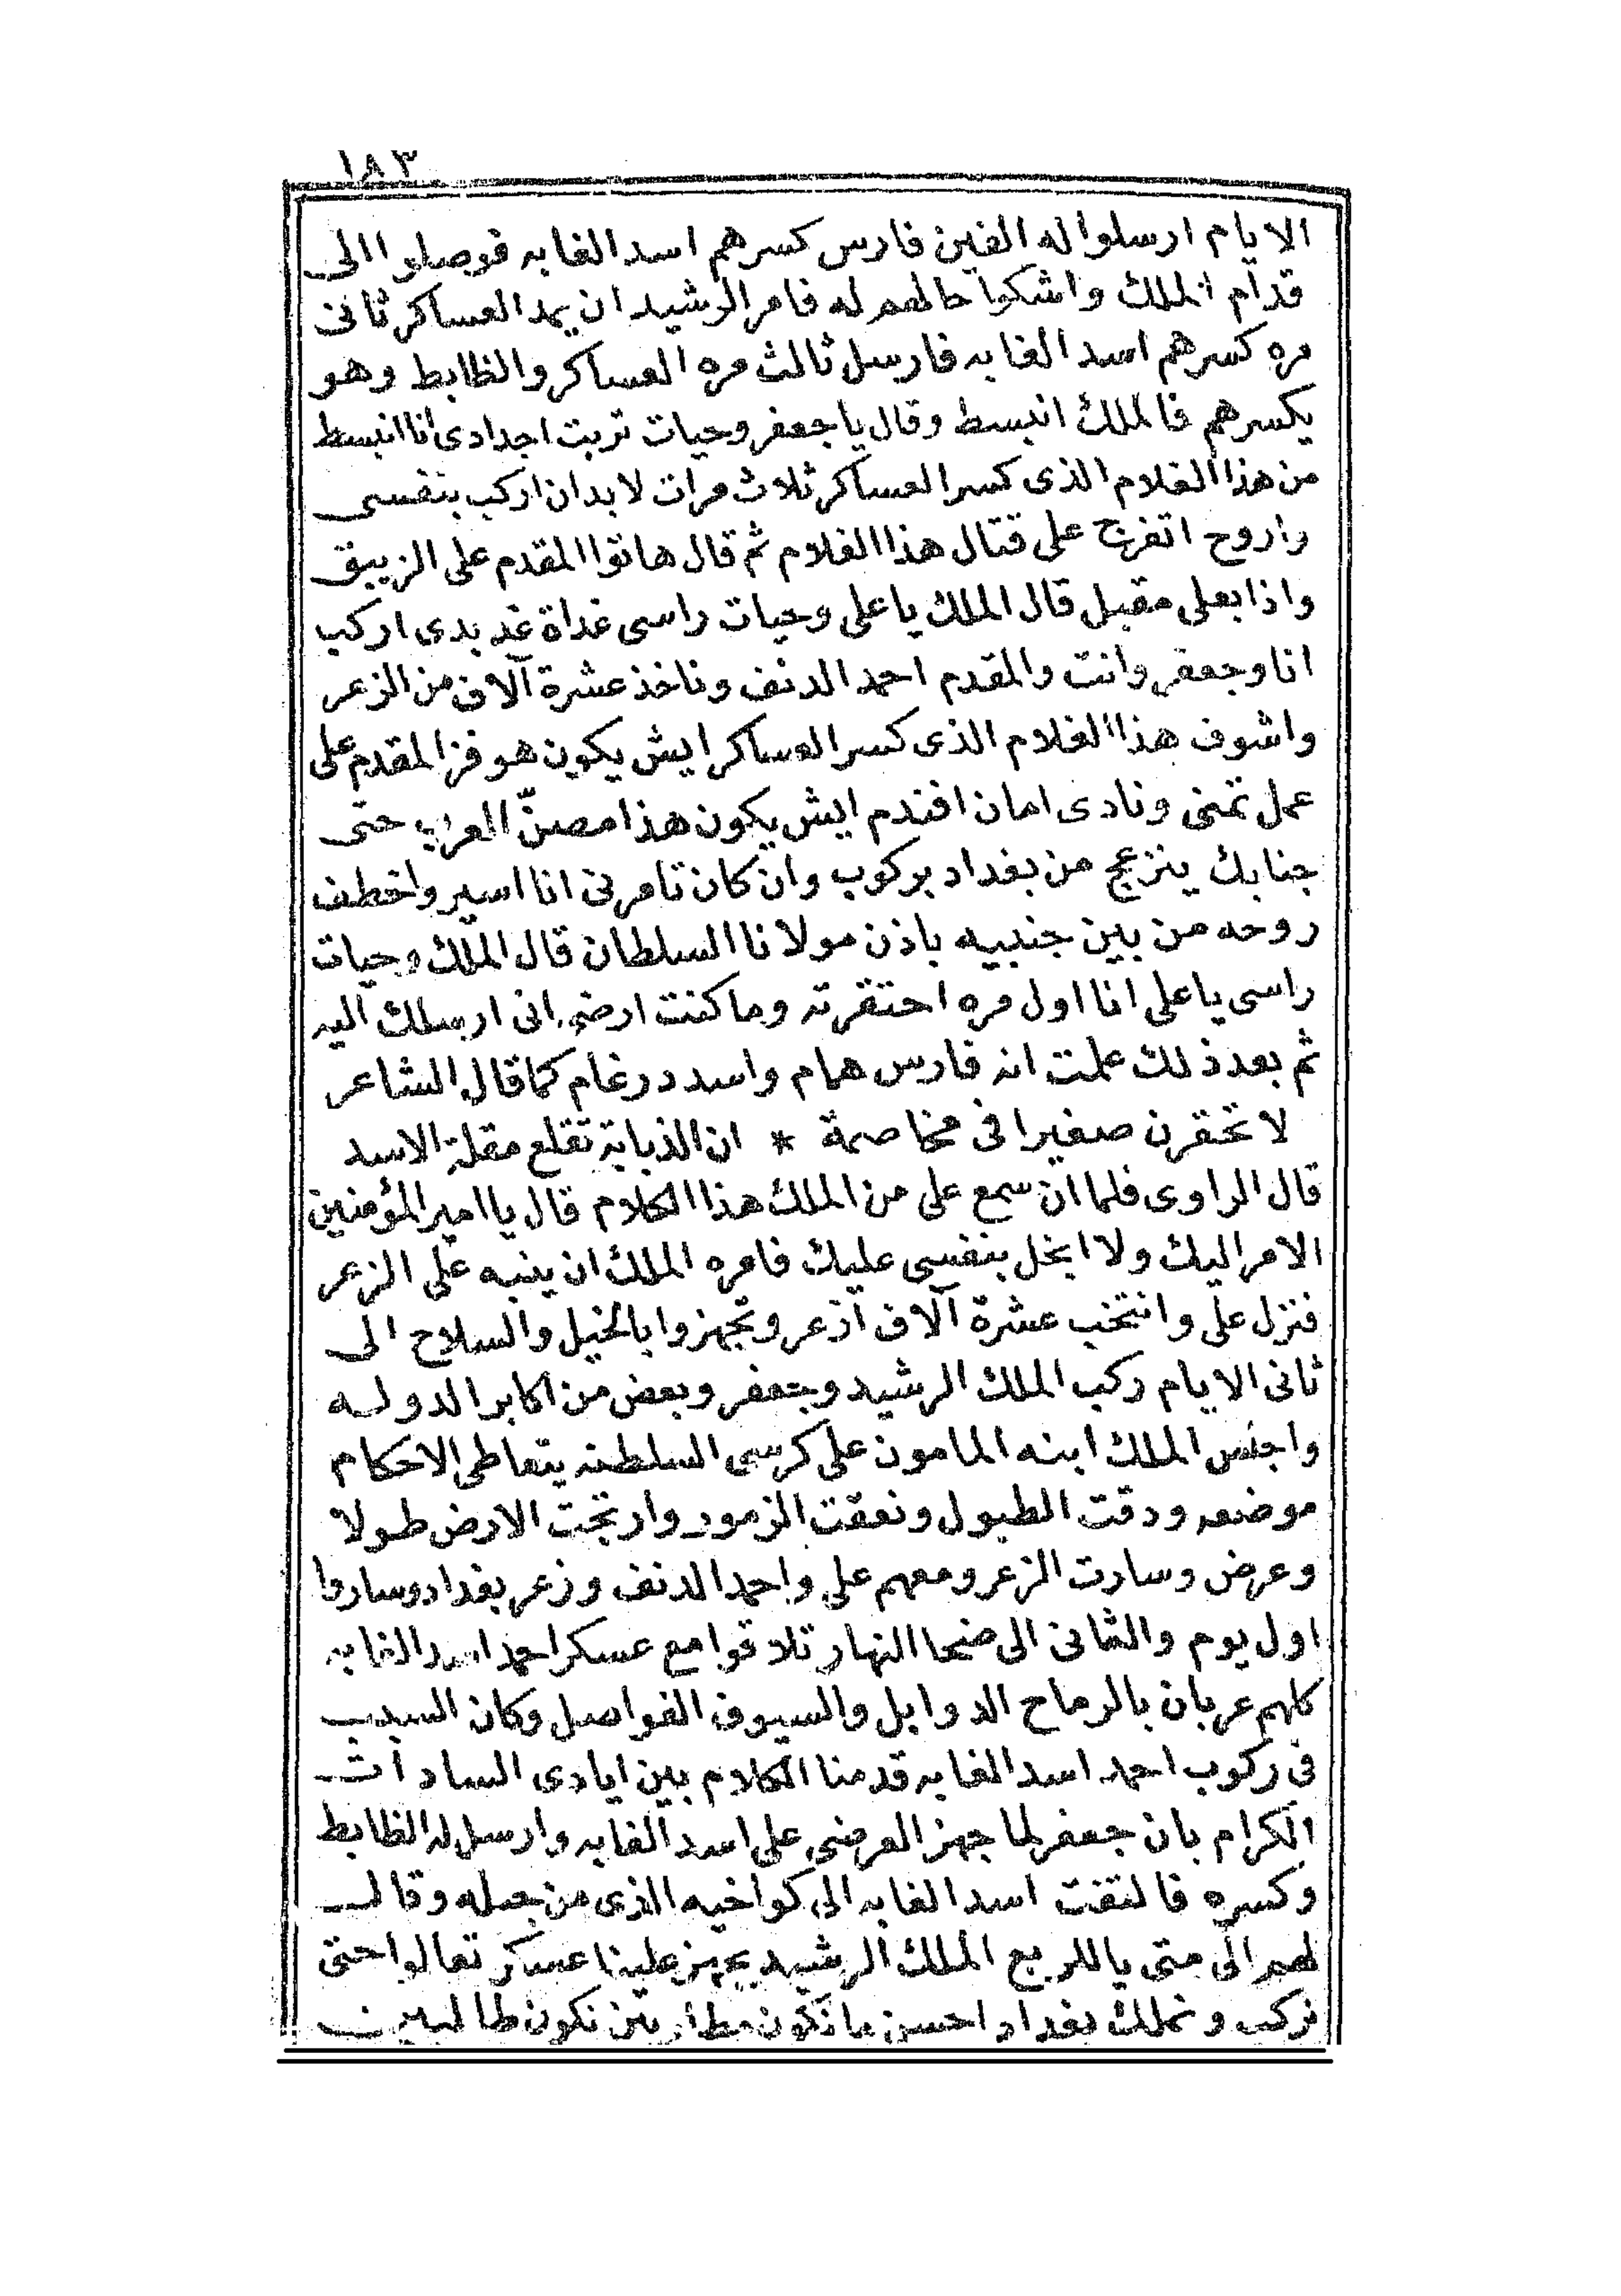 ١٨٣
الايام ارسلوا له الفين فارس كسرهم اسد الغابه فوصلوا الى
قدام الملك واشكوا حالهم له فامر الرشيد ان يمد العساكر ثانى
مره كسرهم اسد الغابه فارسل ثالث مره العساكر والظابط وهو
يكسرهم فالملك انبسط وقال يا جعفر وحيات تربت اجدادى انا انبسط
من هذا الغلام الذى كسر العساكر ثلاث مرات لا بد ان اركب بنفسى
واروح اتفرج على قتال هذا الغلام ثم قال هاتوا المقدم على الزيبق
واذا بعلى مقبل قال الملك يا على وحيات راسى غداة غد بدى اركب
انا وجعفر وانت والمقدم احمد الدنف وناخذ عشرة آلاف من الزعر
واشوف هذا الغلام الذى كسر العساكر ايش يكون هو فز المقدم على
عمل تمنى ونادى امان افندم ايش يكون هذا مصنّ العرب حتى
جنابك ينزعج من بغداد بركوب وان كان تامرنى انا اسير واخطف
روحه من بين جنبيه باذن مولانا السلطان قال الملك وحيات
راسى يا على انا اول مره احتقرته وما كنت ارضى انى ارسلك اليه
ثم بعد ذلك علمت انه فارس همام واسد درغام كما قال الشاعر
لا تحقرن صغيرا فى مخاصمة * ان الذبابة تقلع مقلة الاسد
قال الراوى فلما ان سمع على من الملك هذا الكلام قال يا امير المؤمنين
الامر اليك ولا ابخل بنفسى عليك فامره الملك ان ينبه على الزعر
فنزل على وانتخب عشرة آلاف ازعر وتجهزوا بالخيل والسلاح الى
ثانى الايام ركب الملك الرشيد وجعفر وبعض من اكابر الدوله
واجلس الملك ابنه المامون على كرسى السلطنه يتعاطى الاحكام
موضعه ودقت الطبول ونعقت الزمور وارتجت الارض طولا
وعرض وسارت الزعر ومعهم على واحمد الدنف وزعر بغداد وساروا
اول يوم والثانى الى ضحا النهار تلاقوا مع عسكر احمد اسد الغابه
كلهم عربان بالرماح الدوابل والسيوف الفواصل وكان السبب
فى ركوب احمد اسد الغابه قدمنا الكلام بين ايادى السادات
الكرام بان جعفر لما جهز العرضى على اسد الغابه وارسل له الظابط
وكسره فالتفت اسد الغابه الى كواخيه الذى من جمله وقال
لهم الى متى يا للربع الملك الرشيد يجهز علينا عساكر تعالوا حتى
نركب ونملك بغداد احسن ما نكون مطلوبين نكون طالبين